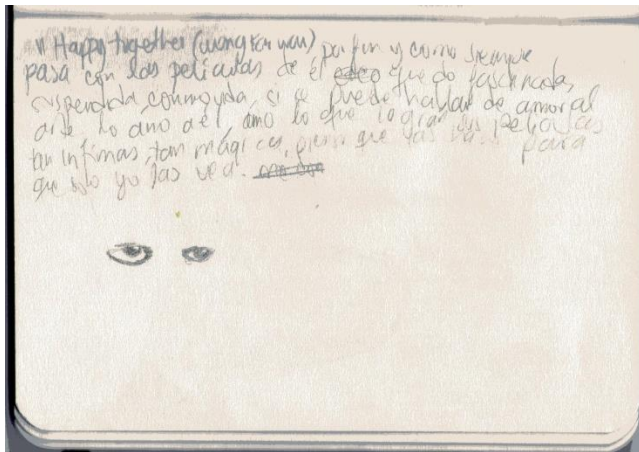 " Happy together (wong kar wai) por fin y como siempre
pasa con las peliculas de él quedo fascinada,
suspendida, conmovida, si se puede hablar de amor al
arte lo amo a él, amo lo que logran sus peliculas
tan infimas, tan mágicas, que las para
que solo yo las vea.